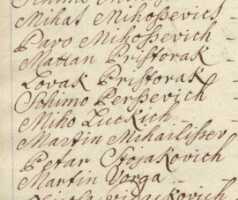 Mihat Mikoßevics
Pavo Mikoßevich
Mattan Pristorak
Lovak Pristorak
Schimo Perßevich
Miko Luckich
Martin Mihailißer
Petar Stojakovich
Martin Varga